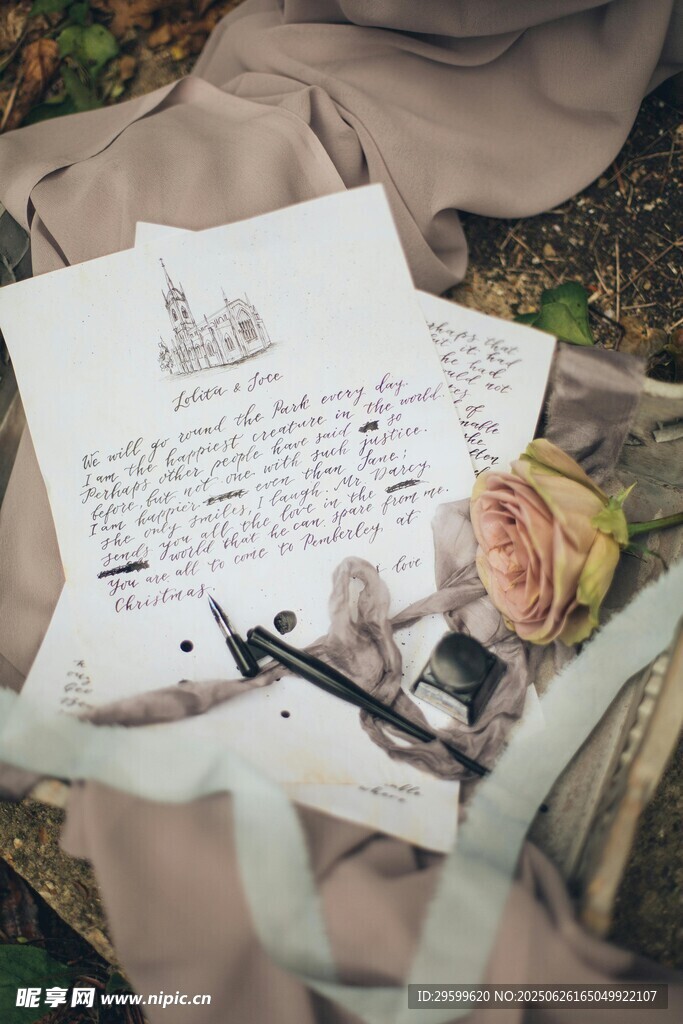 Lolita & Joce
We will go round the Park every day.
I am the happiest creature in the world.
Perhaps other people have said so
before, but not one with such justice.
I am happier even than Jane;
she only smiles, I laugh. Mr. Darcy
sends you all the love in the
world that he can spare from me.
You are all to come to Pemberley at
Christmas.
love
that
it had
he had
not
of
able
where
昵享网 www.nipic.cn
ID:29599620 NO:20250626165049922107